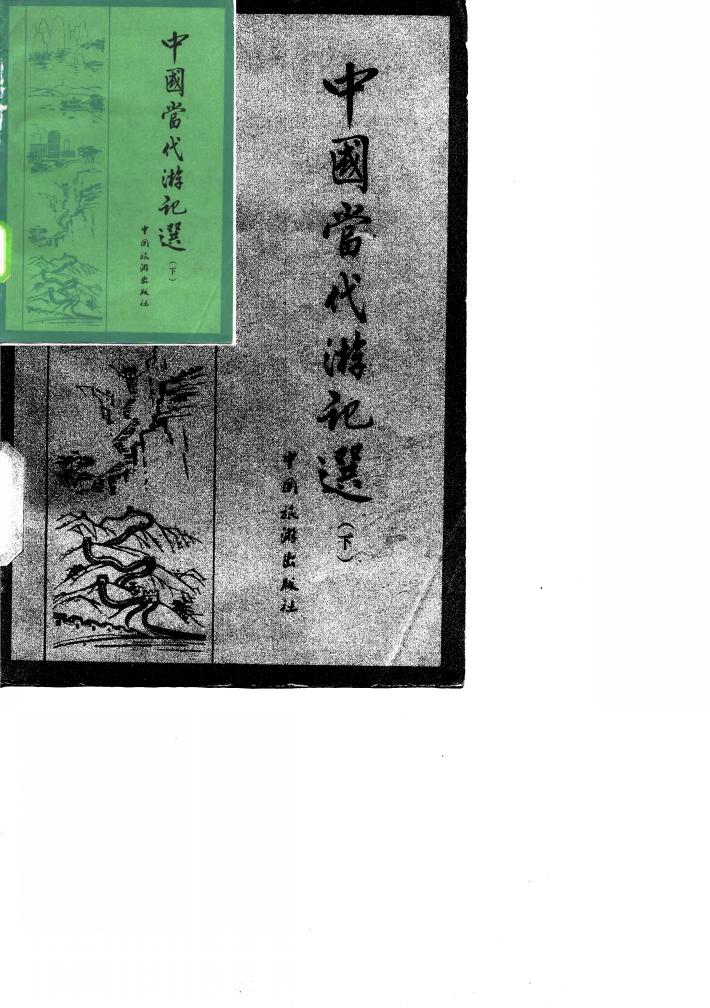 中國當代游记選
(下)
中国旅游出版社
中國當代游记選
(下)
中国旅游出版社